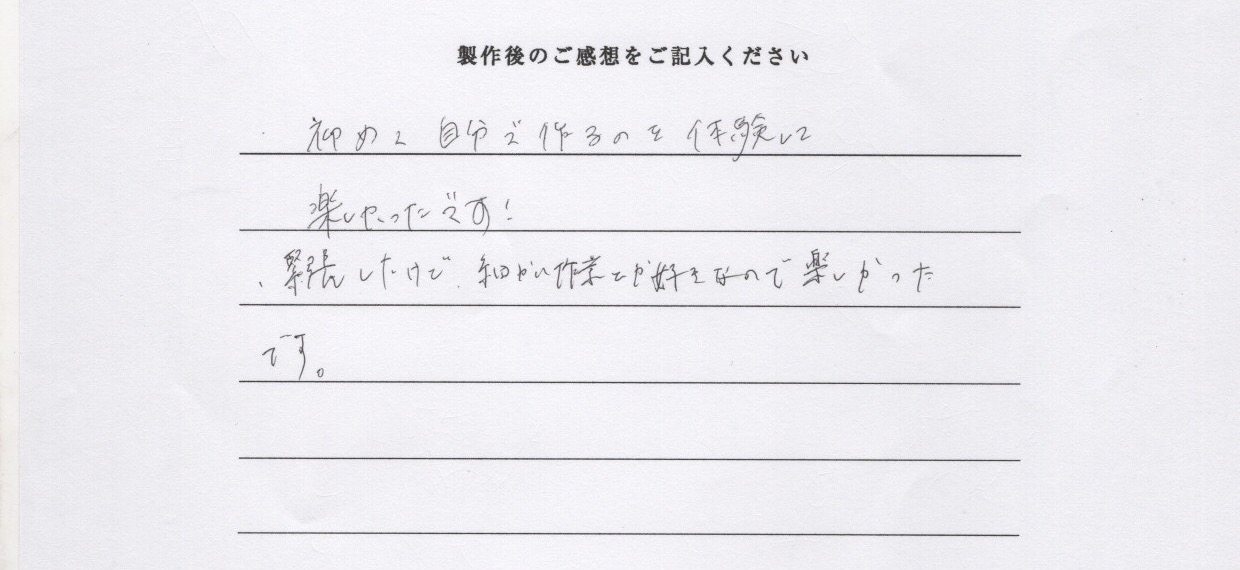 製作後のご感想をご記入ください
・初めて自分で作るのを体験して
楽しかったです!
・緊張したけど、細かい作業とか好きなので楽しかった
です。